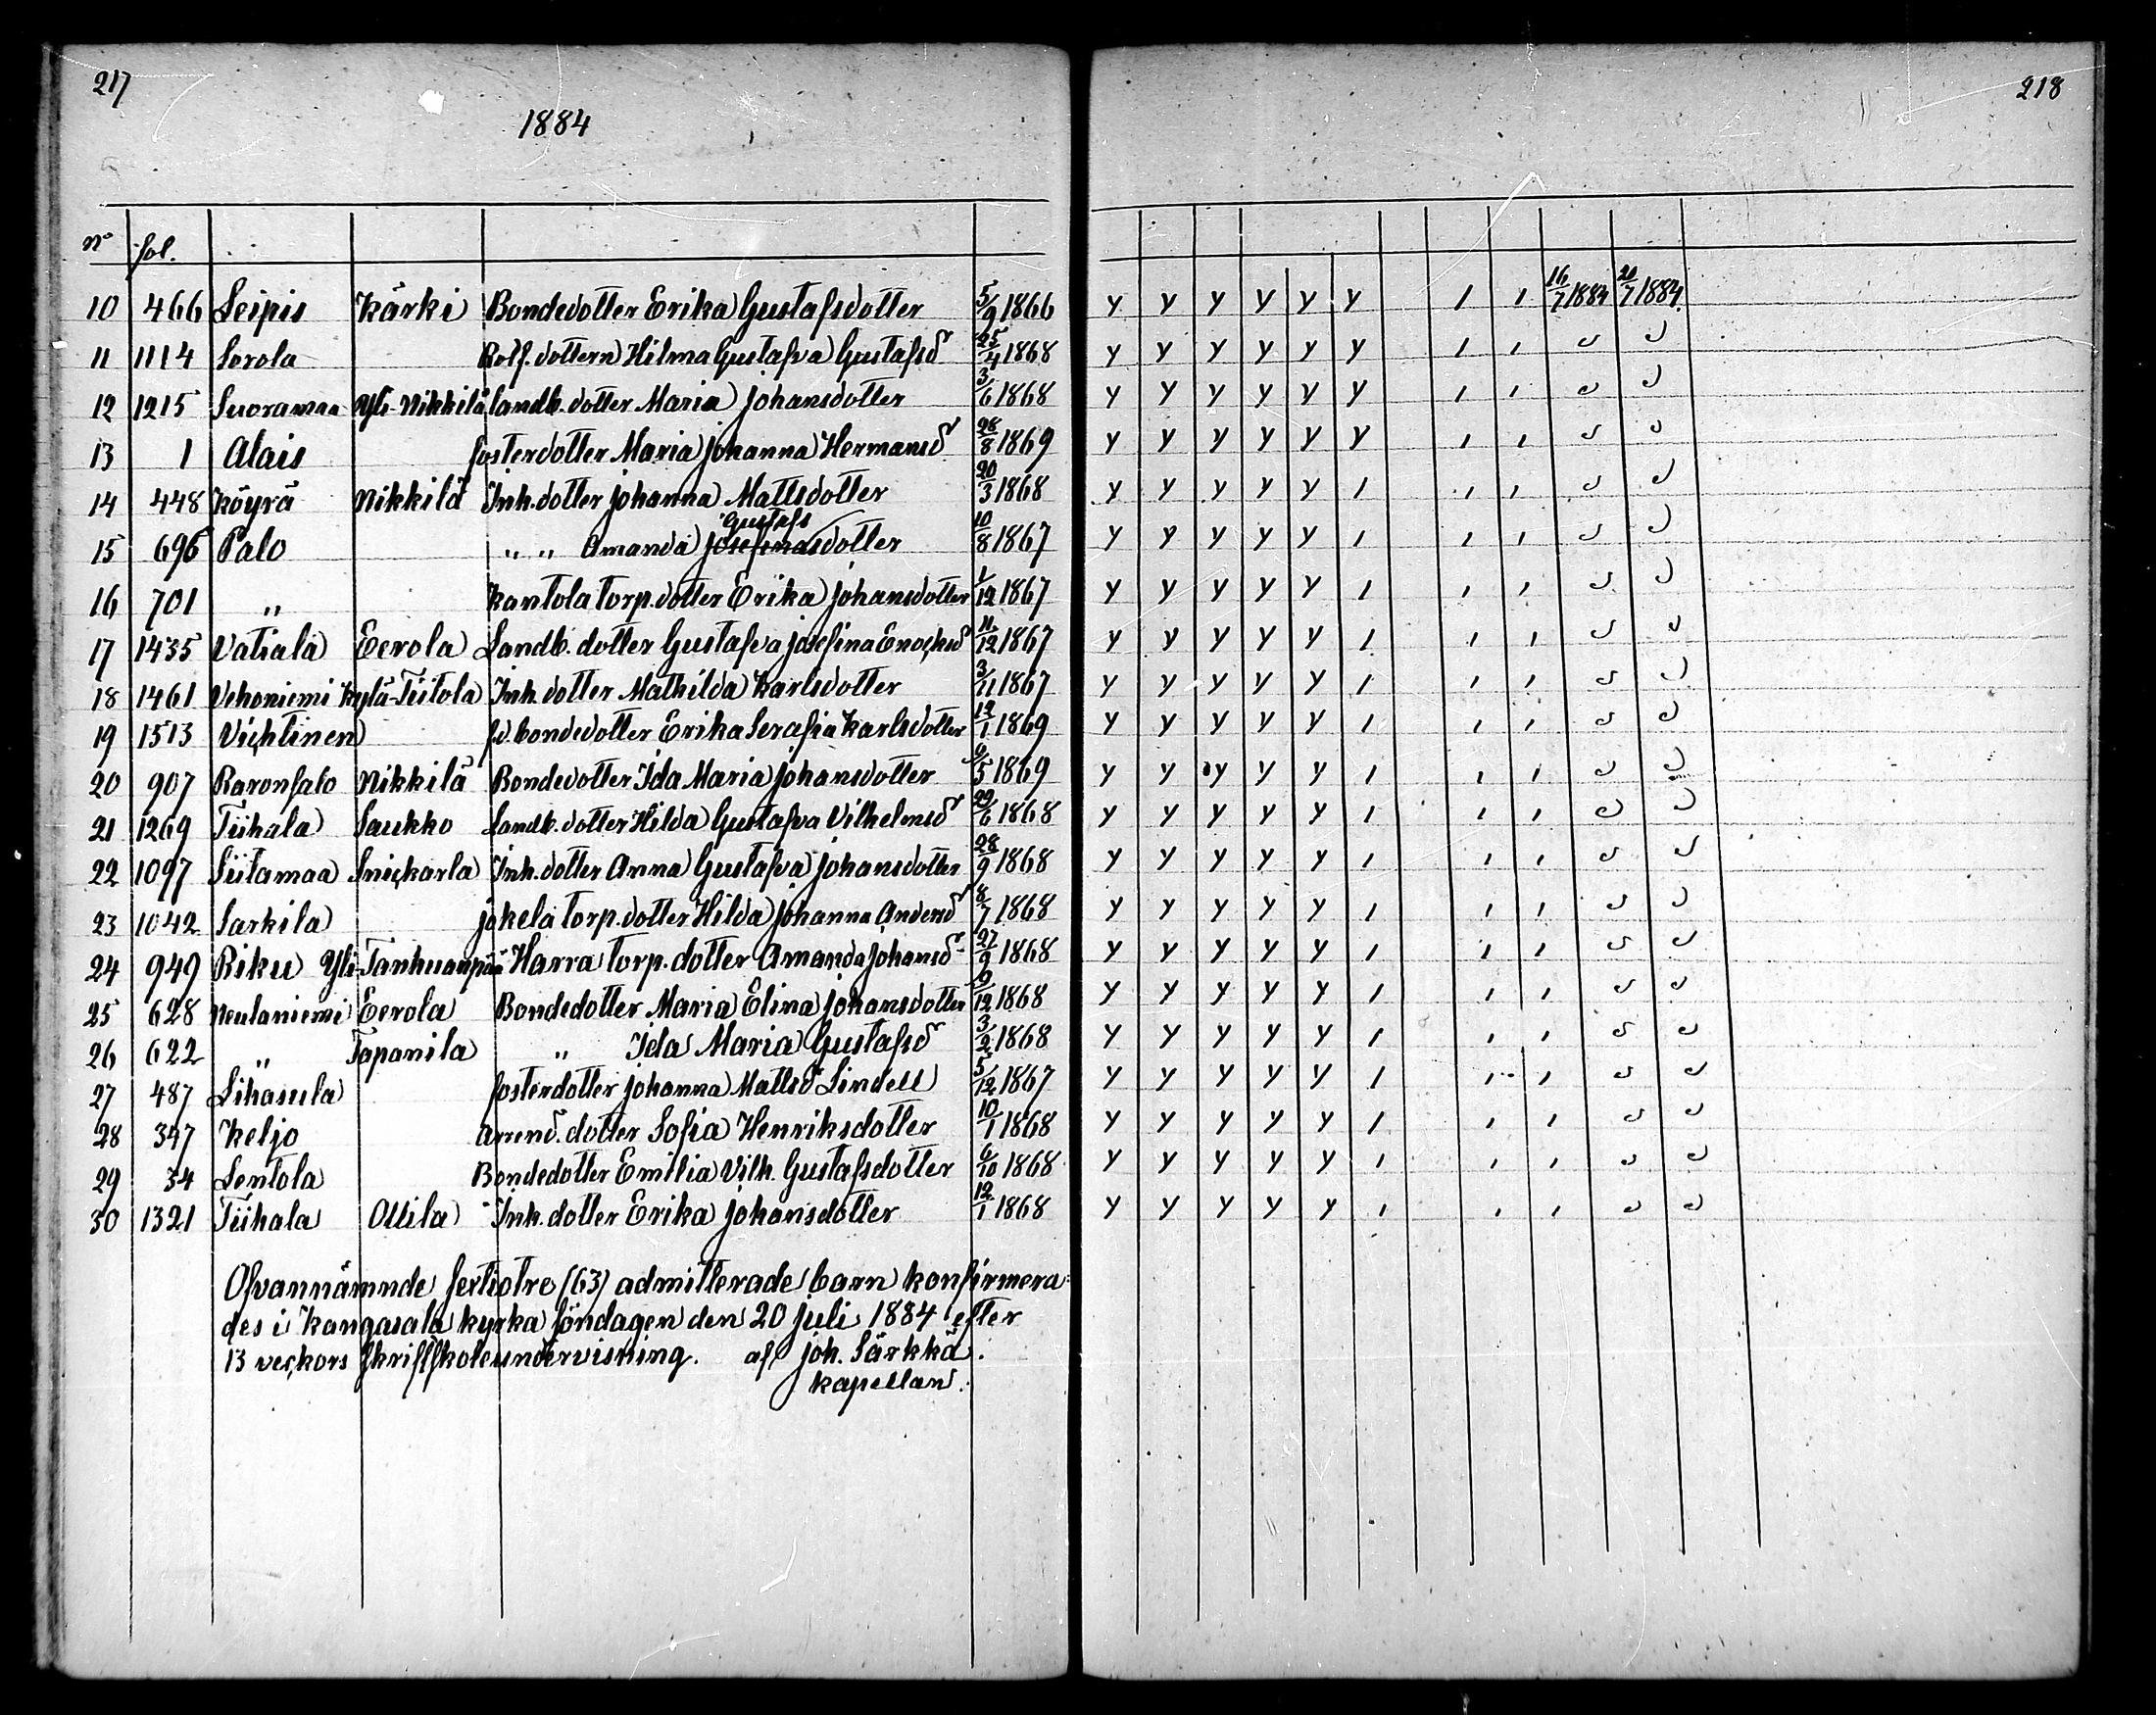 217
218
1884
No fol.
10 466 Leipis Kärki Bondedotter Erika Gustafsdotter 5/9 1866 y y y y y y / / 16/7 1884 20/7 1884.
11 1114 Sorola Rotf. dottern Hilma Gustafva Gustafsd 25/4 1868 y y y y y y / / " "
12 1215 Suoramaa Yli-Nikkilä landb. dotter Maria Johansdotter 3/6 1868 y y y y y y / / " "
13 1 Alais fosterdotter Maria Johanna Hermansd 28/8 1869 y y y y y y / / " "
14 448 Köyrä Nikkilä Inh. dotter Johanna Mattsdotter 20/3 1868 y y y y y / / / " "
Gustafs
15 696 Palo " " Amanda Josefinasdotter 10/8 1867 y y y y y / / / " "
16 701 " Kantola torp. dotter Erika Johansdotter 1/12 1867 y y y y y / / / " "
17 1435 Vatiala Eerola Landb. dotter Gustafva Josefina Enochsd 11/12 1867 y y y y y / / / " "
18 1461 Vehoniemi kylä-Tiitola Inh. dotter Mathilda Karlsdotter 3/11 1867 y y y y y / / / " "
19 1513 Vichtinen fd. bondedotter Erika Serafia Karlsdotter 12/1 1869 y y y y y / / / " "
20 907 Raronsalo Nikkilä Bondedotter Ida Maria Johansdotter 9/5 1869 y y y y y / / / " "
21 1269 Tiihala Saukko Landb. dotter Hilda Gustafva Vilhelmsd 22/6 1868 y y y y y / / / " "
22 1097 Siitamaa Snickarla Inh. dotter Anna Gustafva Johansdotter 28/9 1868 y y y y y / / / " "
23 1042 Sarkila Jokela torp. dotter Hilda Johanna Andersd 8/7 1868 y y y y y / / / " "
24 949 Riku Yli-Tanhuanpää Harra torp. dotter Amanda Johansd 27/9 1868 y y y y y / / / " "
25 628 Neulaniemi Eerola Bondedotter Maria Elina Johansdotter 9/12 1868 y y y y y / / / " "
26 622 " Tapanila " Ida Maria Gustafsd 3/2 1868 y y y y y / / / " "
27 487 Lihasula fosterdotter Johanna Mattsd Lindell 5/12 1867 y y y y y / / / " "
28 347 Keljo Arrend. dotter Sofia Henriksdotter 10/1 1868 y y y y y / / / " "
29 34 Lentola Bondedotter Emilia Vilh. Gustafsdotter 6/10 1868 y y y y y / / / " "
30 1321 Tiihala Ollila Inh. dotter Erika Johansdotter 12/1 1868 y y y y y / / / " "
Ofvannämnde sextiotre (63) admitterade barn konfirmera-
des i Kangasala kyrka söndagen den 20 juli 1884 efter
13 veckors skriftskoleundervisning. af Joh. Särkkä.
kapellan.